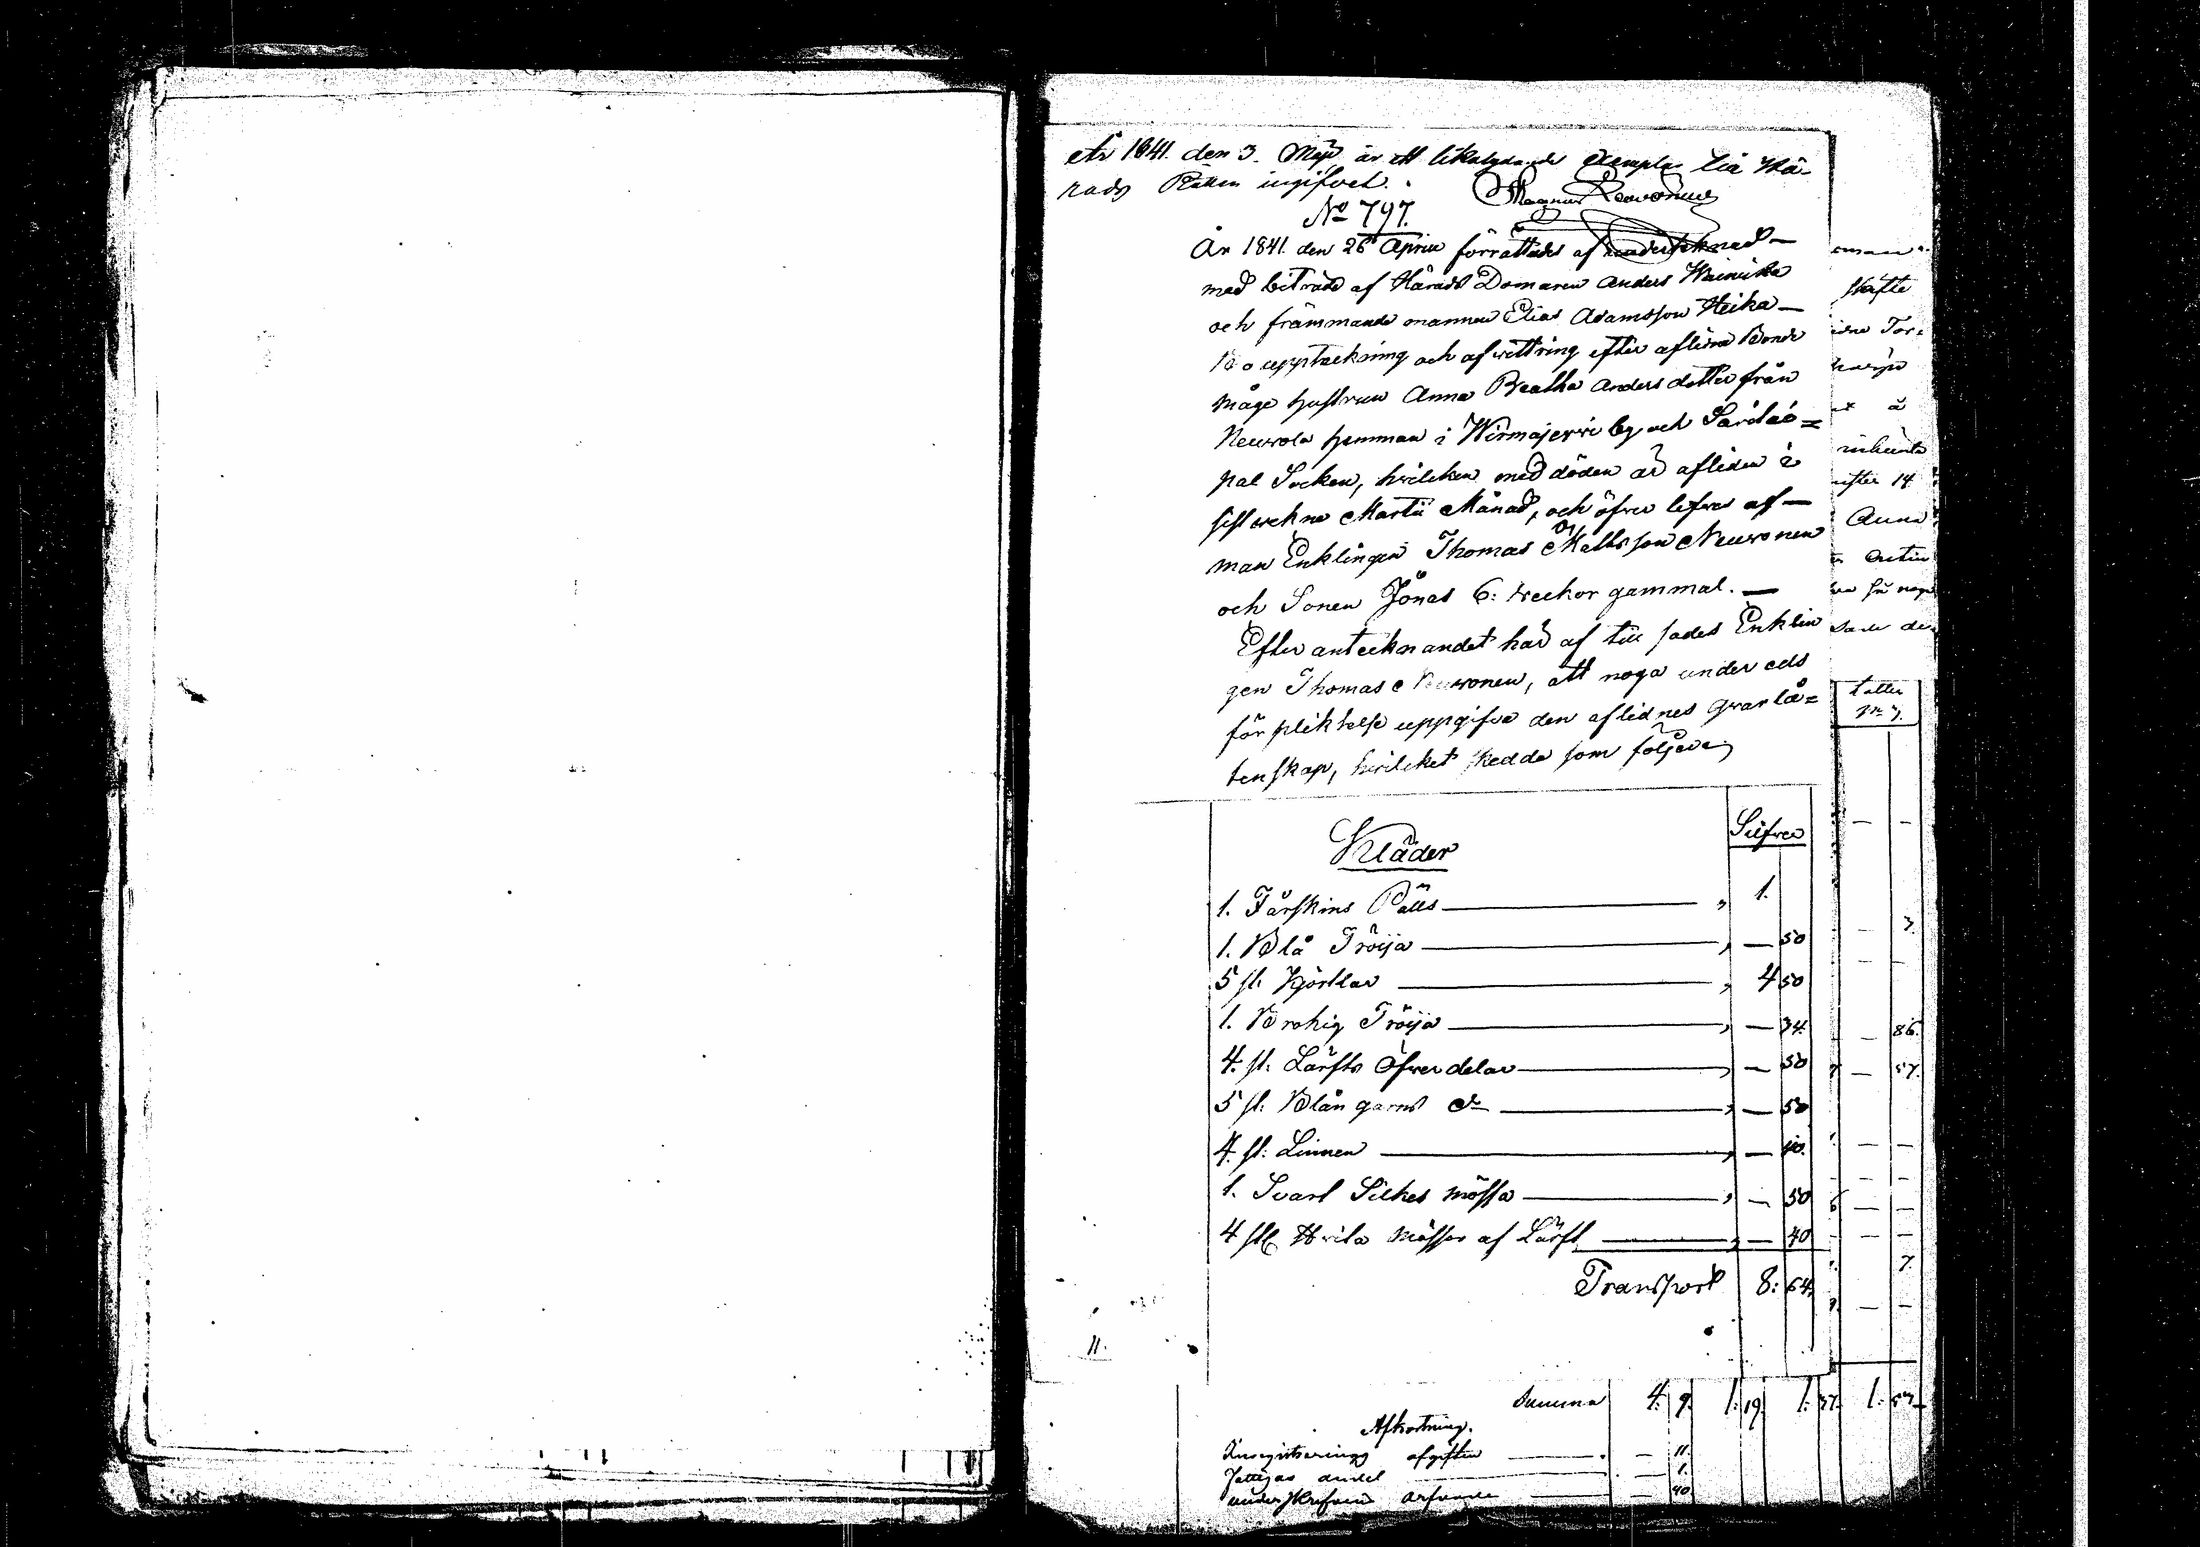 år 1841. den 3. Maji, är ett likalydande exemplar till Hä-
rads Rätten ingifvet.
Magnus
No 797.
År 1841. den 26 Aprill förrättades af undertecknad —
med biträde af Härads Domaren Anders Wainikka
och främmande mannen Elias Adamsson Heika —
Bo uppteckning och afwittring efter aflidna Bonde
måge hustrun Anna Beatha Andersdotter från
Neuvola hemman i Wirmajerwi by och Savitai=
pal Socken, hvilcken med döden är afliden i
sistvekne Martii Månad, och öfver lefves af —
man Enklingen Thomas Mattsson Neuvonen
och Sonen Jonas 6: veckor gammal. —
Efter antecknandet har af till sades Enklin
gen Thomas Neuvonen, att noga under eds
förpliktelse uppgifva den aflidnes qvarlå=
tenskap, hvilcket skedde som följer
Kläder Silfver
1. Fårskins Päls — " 1.
1. Blå Tröija — " — 50
5 st: Kjortlar — " 4 50
1. Brokig Tröija — " — 34.
4. st: Lärfts Öfverdelar — " — 50
5 st: Blångarns do — " — 50
4. st: Linnen — " — 40.
1. Svart Silkes Mössa — " — 50
4 st: Hvita Mössor af Lärft — " — 40
Transport 8: 64.
11.
Skifte
efter 14
Anna
86.
57.
7.
Summa 4. 9. 1. 19. 1. 37. 1. 57.
Afkortning.
Inregistrerings afgiften — 11.
Fattigas andel — 1.
underskrefvand arfvode — 40